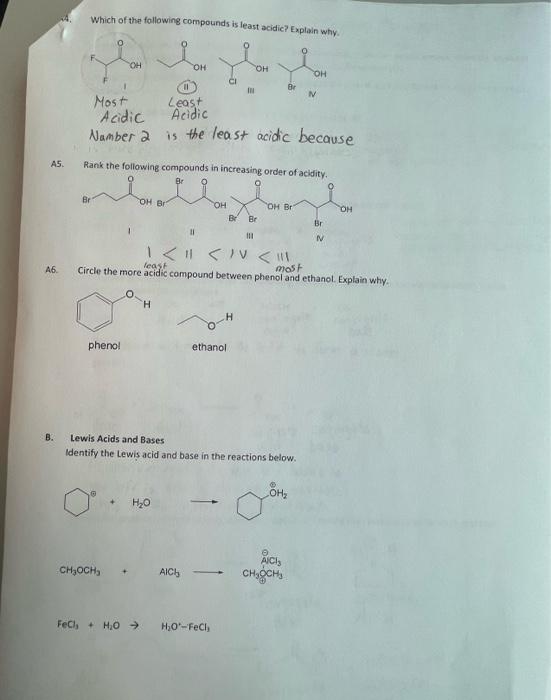 4. Which of the following compounds is least acidic? Explain why.
O O O O
F OH OH OH OH
F Cl Br
I II III IV
Most Least
Acidic Acidic
Number 2 is the least acidic because
A5. Rank the following compounds in increasing order of acidity.
O Br O O O
Br OH Br OH OH Br OH
Br Br Br
I II III IV
I < II < IV < III
least most
A6. Circle the more acidic compound between phenol and ethanol. Explain why.
O H
O H
phenol ethanol
B. Lewis Acids and Bases
Identify the Lewis acid and base in the reactions below.
⊕ + H₂O ⟶ ⊕OH₂
⊖AlCl₃
CH₃OCH₃ + AlCl₃ ⟶ CH₃OCH₃
⊕
FeCl₃ + H₂O → H₂O⁺–FeCl₃